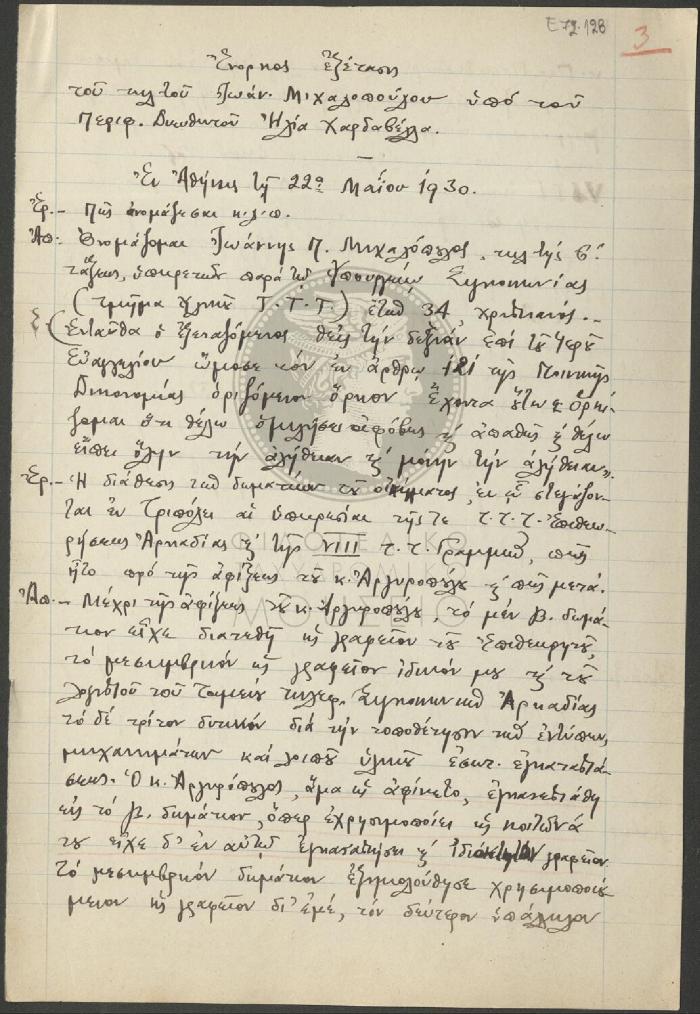 Ε 72.128
3
Ἔνορκος ἐξέτασις
τοῦ τηλ τοῦ Ἰωάν. Μιχαλοπούλου ὑπό τοῦ
Περιφ. Διευθυντοῦ Ἠλία Χαρδαβέλλα.
Ἐν Ἀθήναις τῇ 22ᾳ Μαΐου 1930.
Ἐρ.- Πῶς ὀνομάζεσαι κ.λ.π.
Ἀπ.- Ὀνομάζομαι Ἰωάννης Π. Μιχαλόπουλος, τηλ τής Β΄.
τάξεως, ὑπηρετῶν παρά τῷ Ὑπουργείῳ Συγκοινωνίας
(τμῆμα ὑλικοῦ Τ.Τ.Τ.) ἐτῶν 34, χριστιανός.-
(Ἐνταῦθα ὁ ἐξεταζόμενος θείς τήν δεξιάν ἐπί τοῦ Ἱεροῦ
Εὐαγγελίου ὤμοσε τόν ἐν ἄρθρῳ 121 τῆς Ποινικῆς
Δικονομίας ὁριζόμενον ὅρκον ἔχοντα οὕτω « Ὁρκί-
ζομαι ὅτι θέλω ὁμιλήσει ἀφόβως κ΄ ἀπαθῶς κ΄ θέλω
εἴπει ὅλην τήν ἀλήθειαν κ΄ μόνην τήν ἀλήθειαν».
Ἐρ.- Ἡ διάθεσις τῶν δωματίων τοῦ οἰκήματος, ἐν ᾧ στεγάζον-
ται ἐν Τριπόλει αἱ ὑπηρεσίαι τῆς τε Τ.Τ.Τ. Ἐπιθεω-
ρήσεως Ἀρκαδίας κ΄ τῆς VIII τ.τ. Γραμμῶν, πῶς
ἦτο πρό τῆς ἀφίξεως τοῦ κ. Ἀργυροπούλου κ΄ πῶς μετά.
Ἀπ.- Μέχρι τῆς ἀφίξεως τοῦ κ. Ἀργυροπούλου, τό μέν Β. δωμά-
τιον εἶχε διατεθῆ ὡς γραφεῖον τοῦ Ἐπιθεωρητοῦ,
τό μεσημβρινόν ὡς γραφεῖον ἰδικόν μου κ΄ τοῦ
λογιστοῦ τοῦ Ταμείου τηλεφ. Συγκοινωνιῶν Ἀρκαδίας
τό δέ τρίτον δυτικόν διά τήν τοποθέτησιν τῶν ἐντύπων,
μηχανημάτων καί λοιποῦ ὑλικοῦ ἐσωτ. ἐγκαταστά-
σεως. Ὁ κ. Ἀργυρόπουλος, ἅμα ὡς ἀφίκετο, ἐγκατεστάθη
εἰς τό Β. δωμάτιον, ὅπερ ἐχρησιμοποίει ὡς κοιτῶνά
του εἶχε δ᾽ ἐν αὐτῷ ἐγκαταστήσει κ΄ γραφεῖον
Τό μεσημβρινόν δωμάτιον ἐξηκολούθησε χρησιμοποιού
μενον ὡς γραφεῖον δι᾽ ἐμέ, τόν δεύτερον ὑπάλληλον
ΦΙΛΟΤΕΛΙΚΟ
ΤΑΧΥΔΡΟΜΙΚΟ
ΜΟΥΣΕΙΟ